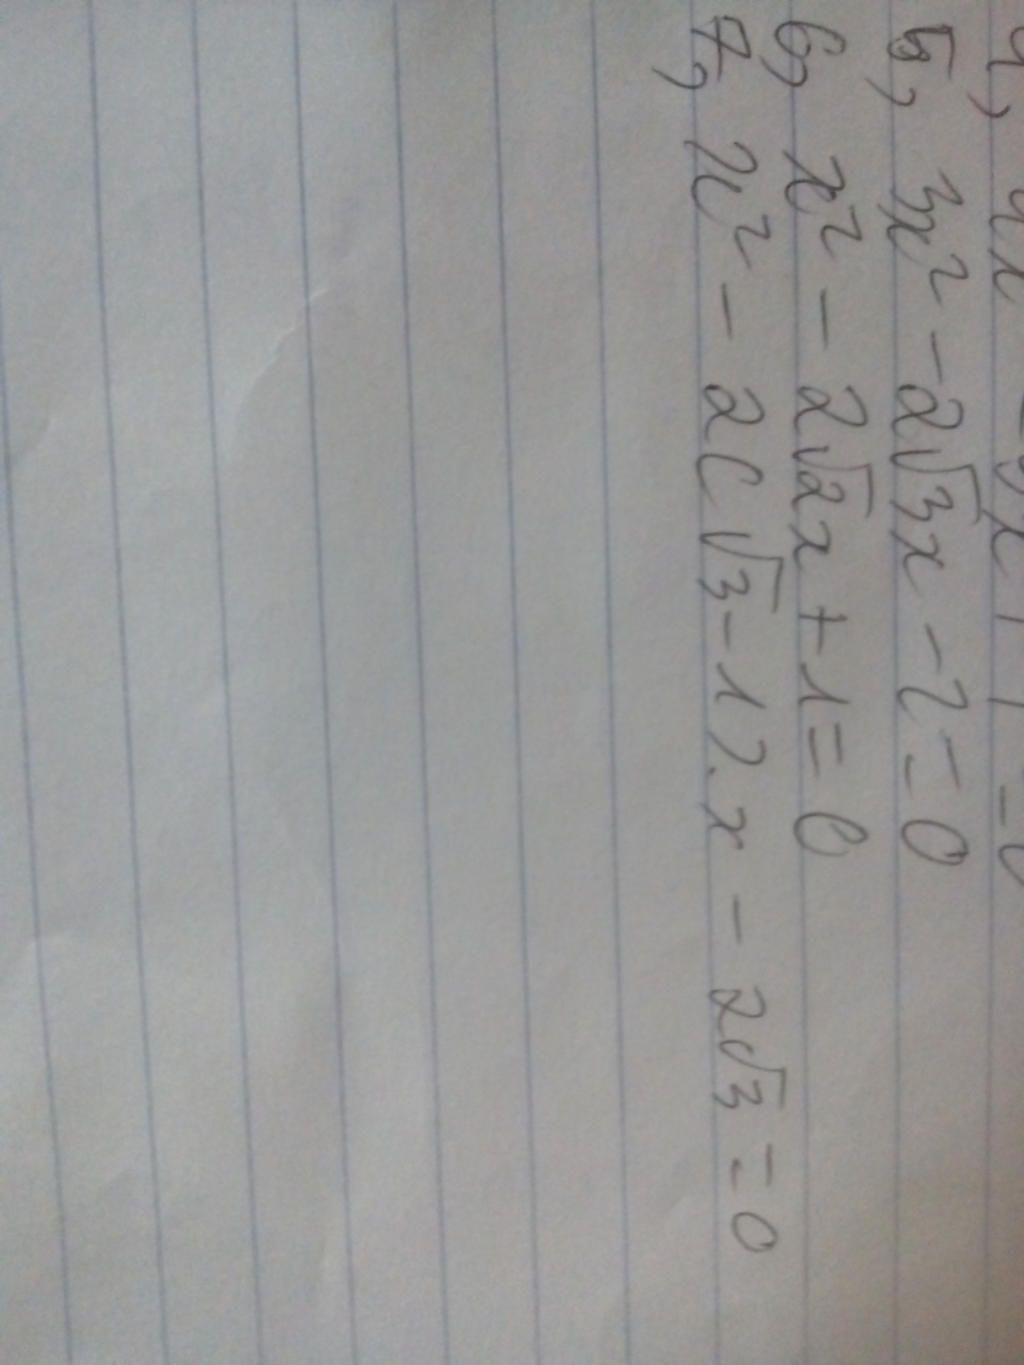 5, 3x² - 2√3x - 2 = 0
6, x² - 2√2x + 1 = 0
7, x² - 2(√3 - 1).x - 2√3 = 0